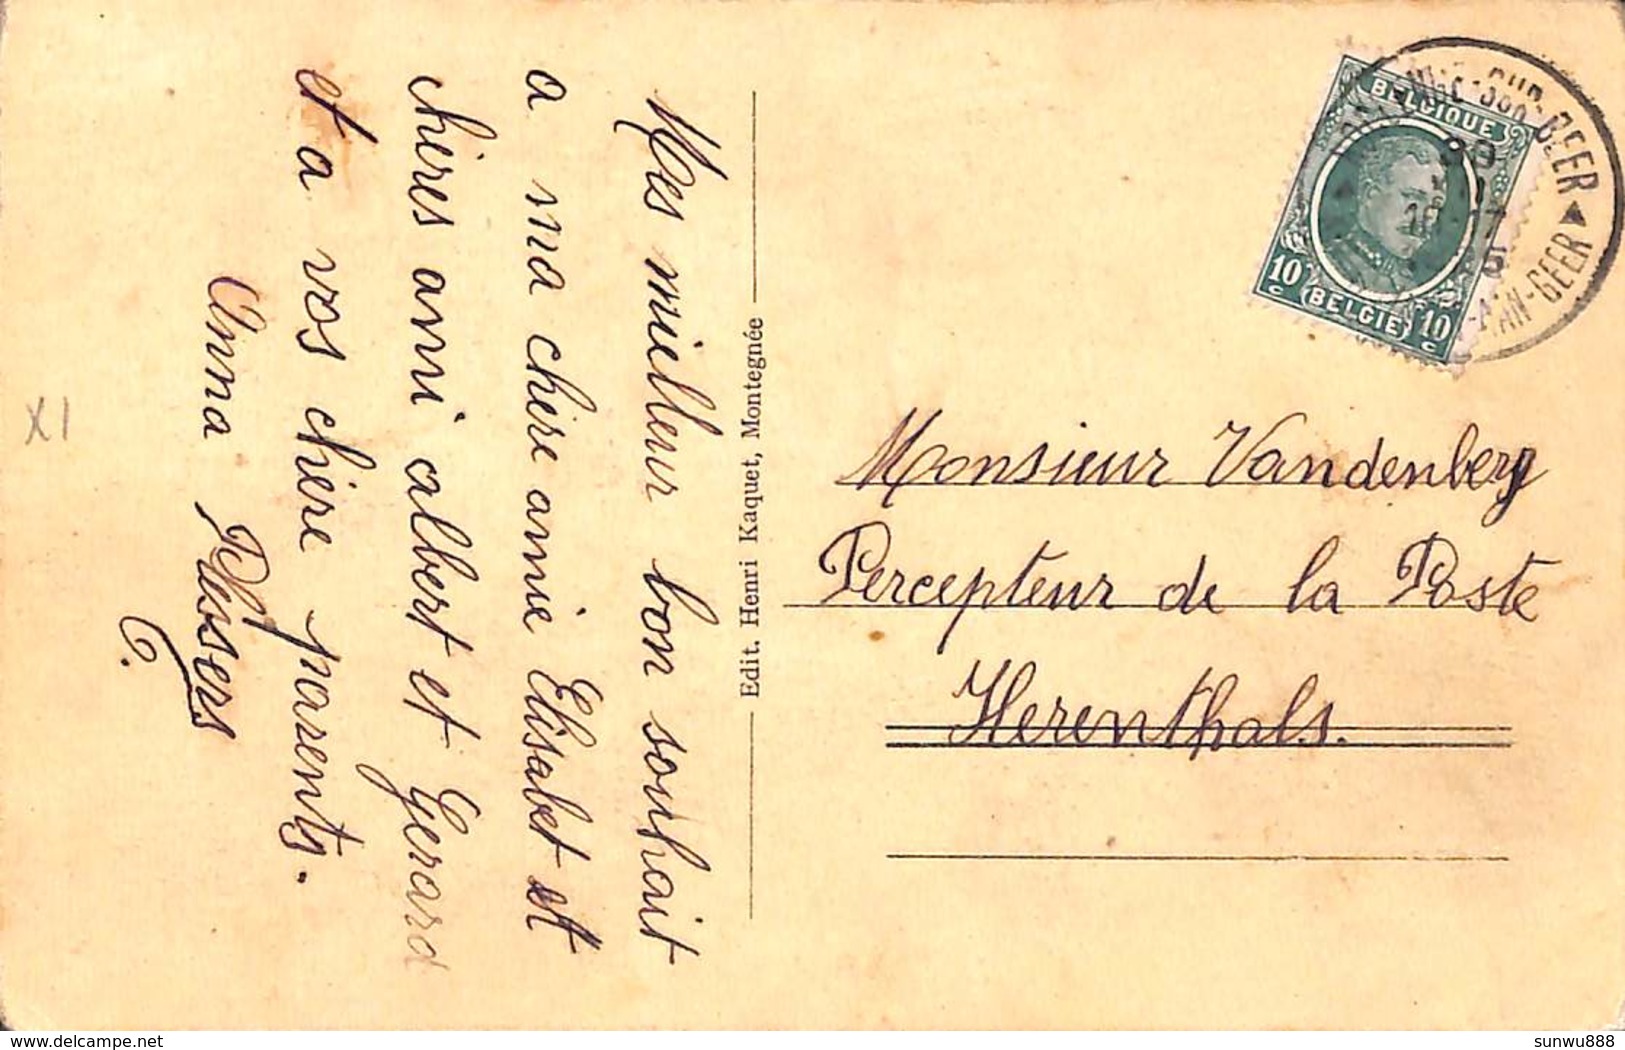 Mes mielleur bon souhait
a ma chère amie Elisabet et
chères ami albert et Gerard
et a vos chère parents.
Anna
Edit. Henri Kaquet, Montegnée
BELGIQUE
10 c BELGIE 10 c
SUR-GEER
AAN-GEER
Monsieur Vandenberg
Percepteur de la Poste
Herenthals.
XI
delcampe.net
sunwu888